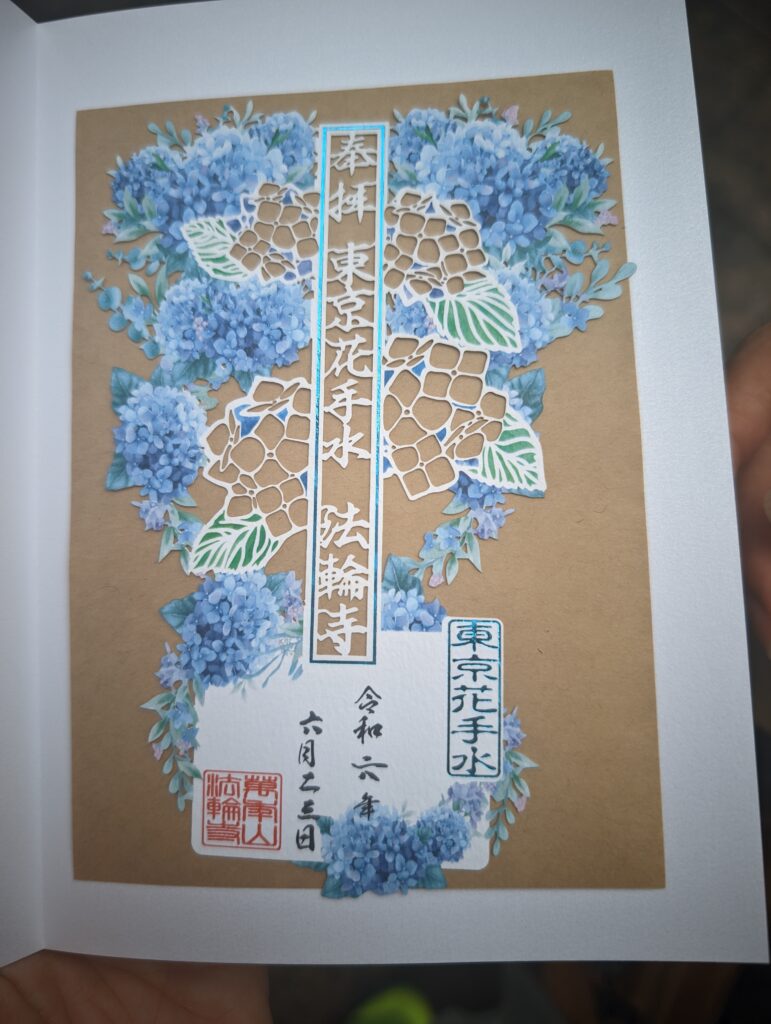 奉拝 東京花手水 法輪寺
東京花手水
令和六年
六月二三日
萬年山
法輪寺